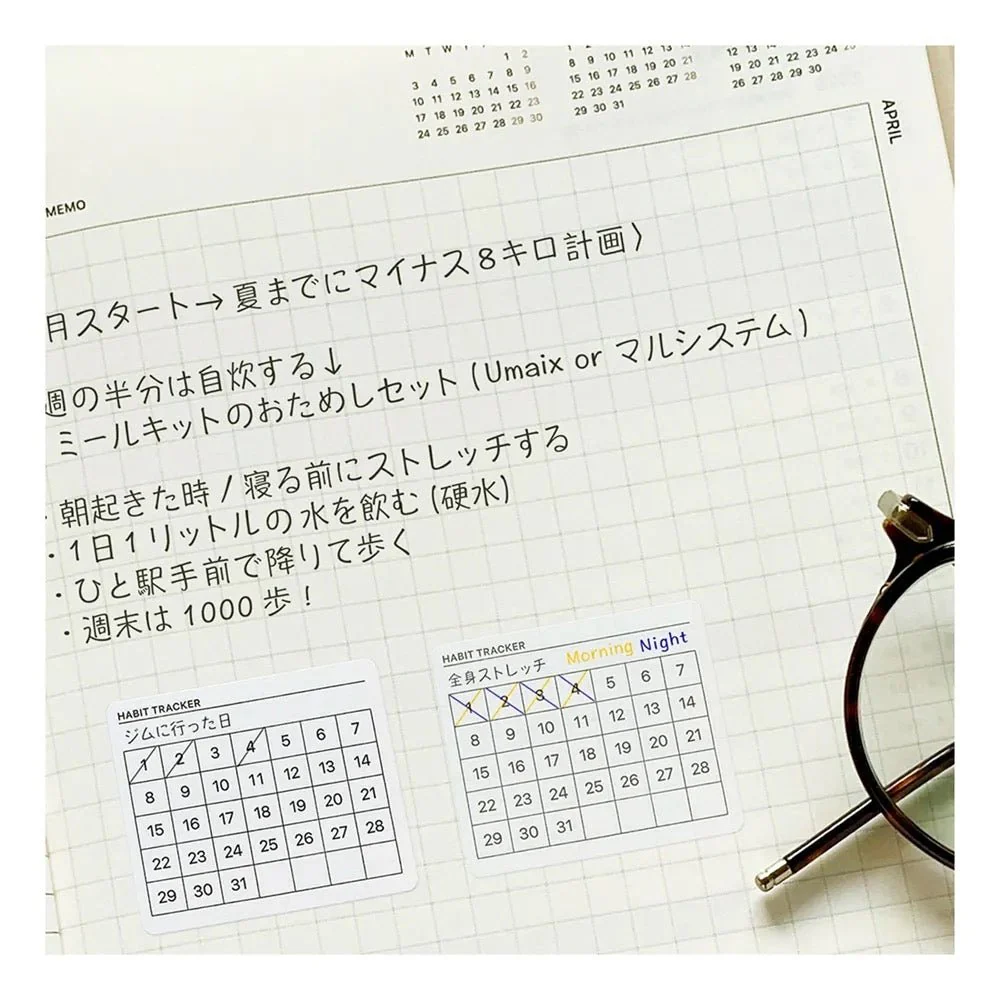 M T W T
1 2
3 4 5 6 7 8 9
10 11 12 13 14 15 16
17 18 19 20 21 22 23
24 25 26 27 28 29 30
8 9 10 11 12 13 14
15 16 17 18 19 20 21
22 23 24 25 26 27 28
29 30 31
12 13 14
19 20 21 22 23 24 25
26 27 28 29 30
APRIL
MEMO
月スタート→夏までにマイナス8キロ計画〉
週の半分は自炊する↓
ミールキットのおためしセット(Umaix or マルシステム)
・朝起きた時/寝る前にストレッチする
・1日1リットルの水を飲む(硬水)
・ひと駅手前で降りて歩く
・週末は1000歩!
HABIT TRACKER
ジムに行った日
1 2 3 4 5 6 7
8 9 10 11 12 13 14
15 16 17 18 19 20 21
22 23 24 25 26 27 28
29 30 31
HABIT TRACKER
全身ストレッチ Morning Night
1 2 3 4 5 6 7
8 9 10 11 12 13 14
15 16 17 18 19 20 21
22 23 24 25 26 27 28
29 30 31